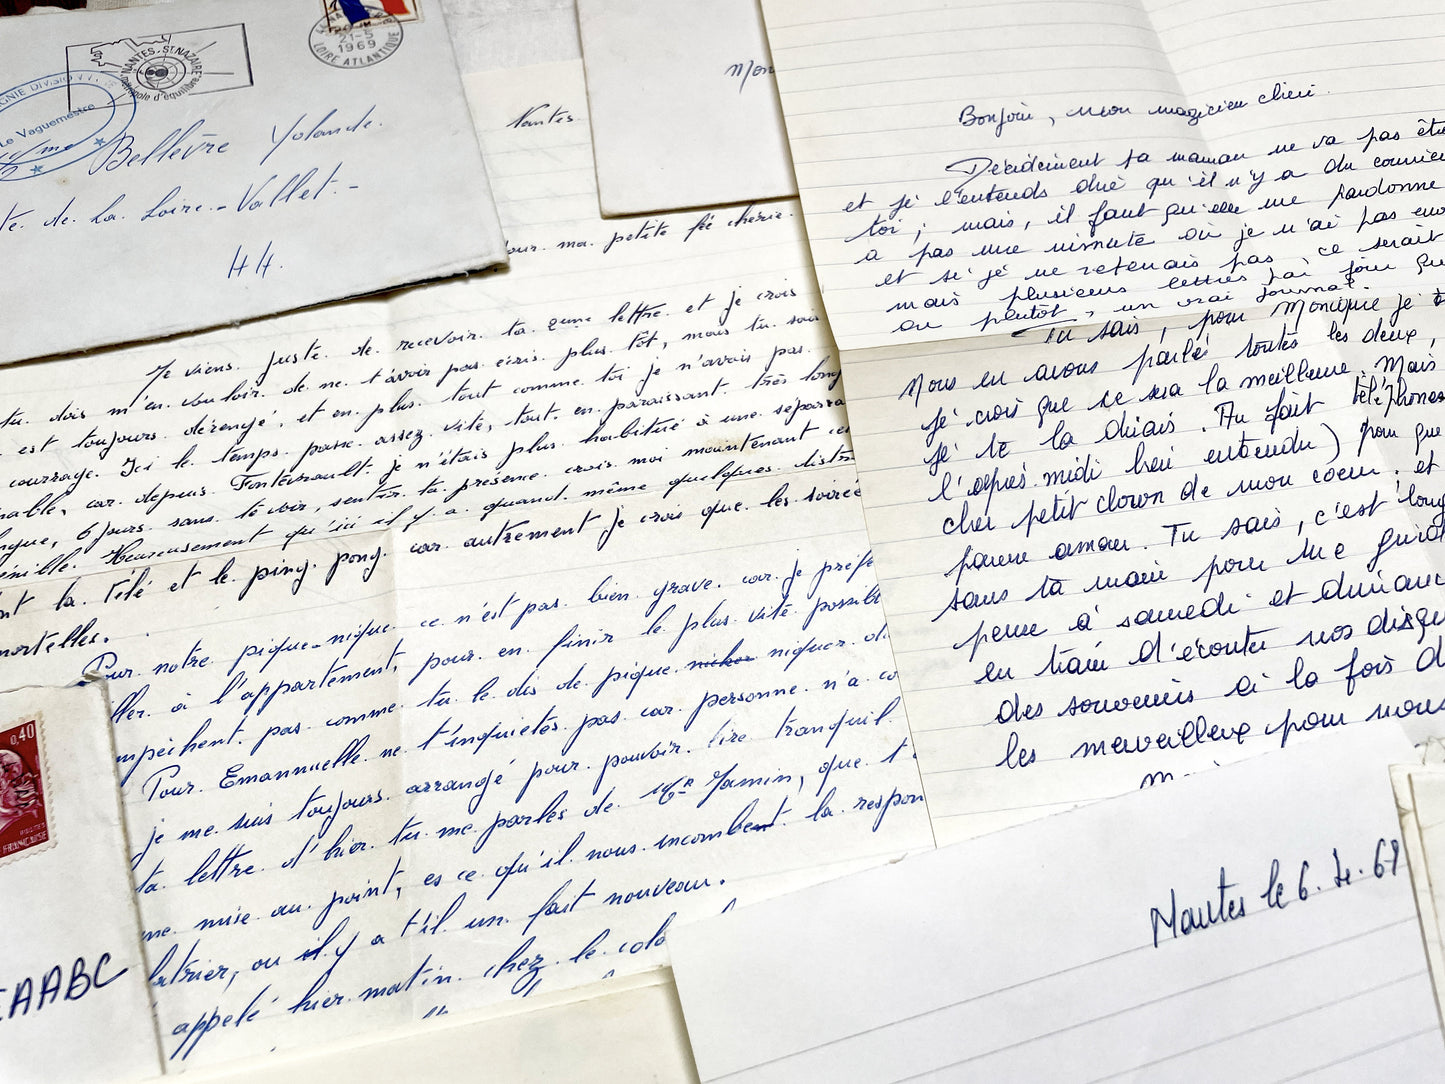 NANTES-ST NAZAIRE
métropole d'équilibre
21-5
1969
LOIRE ATLANTIQUE
Le Vaguemestre
Bellèvre Yolande.
de la Loire.-Vallet.-
44.
Nantes.
Mon
our. ma. petite fée chérie.
Je viens. juste. de. recevoir. ta. 2ème lettre. et je crois
tu. dois m'en. vouloir. de. ne. t'avoir pas. écris. plus. tôt, mais tu. sais
est toujours. dérengé, et en. plus. tout comme. toi je. n'avais pas.
courrage. Ici le. temps. passe. assez. vite, tout. en. paraissant. très long
nable, car. depuis. Fontévrault. je n'étais plus. habitué à une. sépara
ngue, 6 jours. sans. te voir, sentir. ta. présence. crois. moi maintenant
énible. Heureusement qu'ici il y. a. quand. même. quelques. distra
nt la. télé et le. ping. pong. car. autrement je crois que les. soirée
mortelles.
Pour. notre. pique-nique. ce n'est pas. bien. grave. car. je préfè
ller. à l'appartement, pour. en. finir. le. plus. vite. possibl
mpèchent. pas. comme. tu le. dis de. pique. nicher niquer.
Pour. Emannuelle. ne. t'inquietès pas. car. personne. n'a. co
je. me. suis. toujours. arrangé pour. pouvoir. lire tranquil
ta. lettre. d'hier. tu. me. parles. de. Mr Jamin, que. t
me mise. au. point, es ce. qu'il. nous. incombent. la. respon
ou il y a t'il. un. fait nouveau.
appelé hier. matin. chez. le. colo
0,40
POSTES
FRANCAISE
AABC
Bonjour, mon magicien chéri.
Décidément ta maman ne va pas êt
et je l'entends dire qu'il n'y a du courrie
toi ; mais, il faut qu'elle me pardonne
a pas une minute où je n'ai pas env
et si je ne retenais pas ce serait
mais plusieurs lettres par jour que
ou plutôt, un vrai journal.
Tu sais, pour Monique je t
Nous en avons parlé toutes les deux,
je crois que ce sera la meilleure. Mais
je te la dirais. Au fait téléphones
l'après midi bien entendu) pour que
cher petit clown de mon coeur. et
pauvre amour. Tu sais, c'est long
sans ta main pour me guid
pense à samedi et dimanc
en train d'écouter nos disqu
des souvenirs à la fois d
les merveilleux pour nous
Nantes le 6. 4. 69